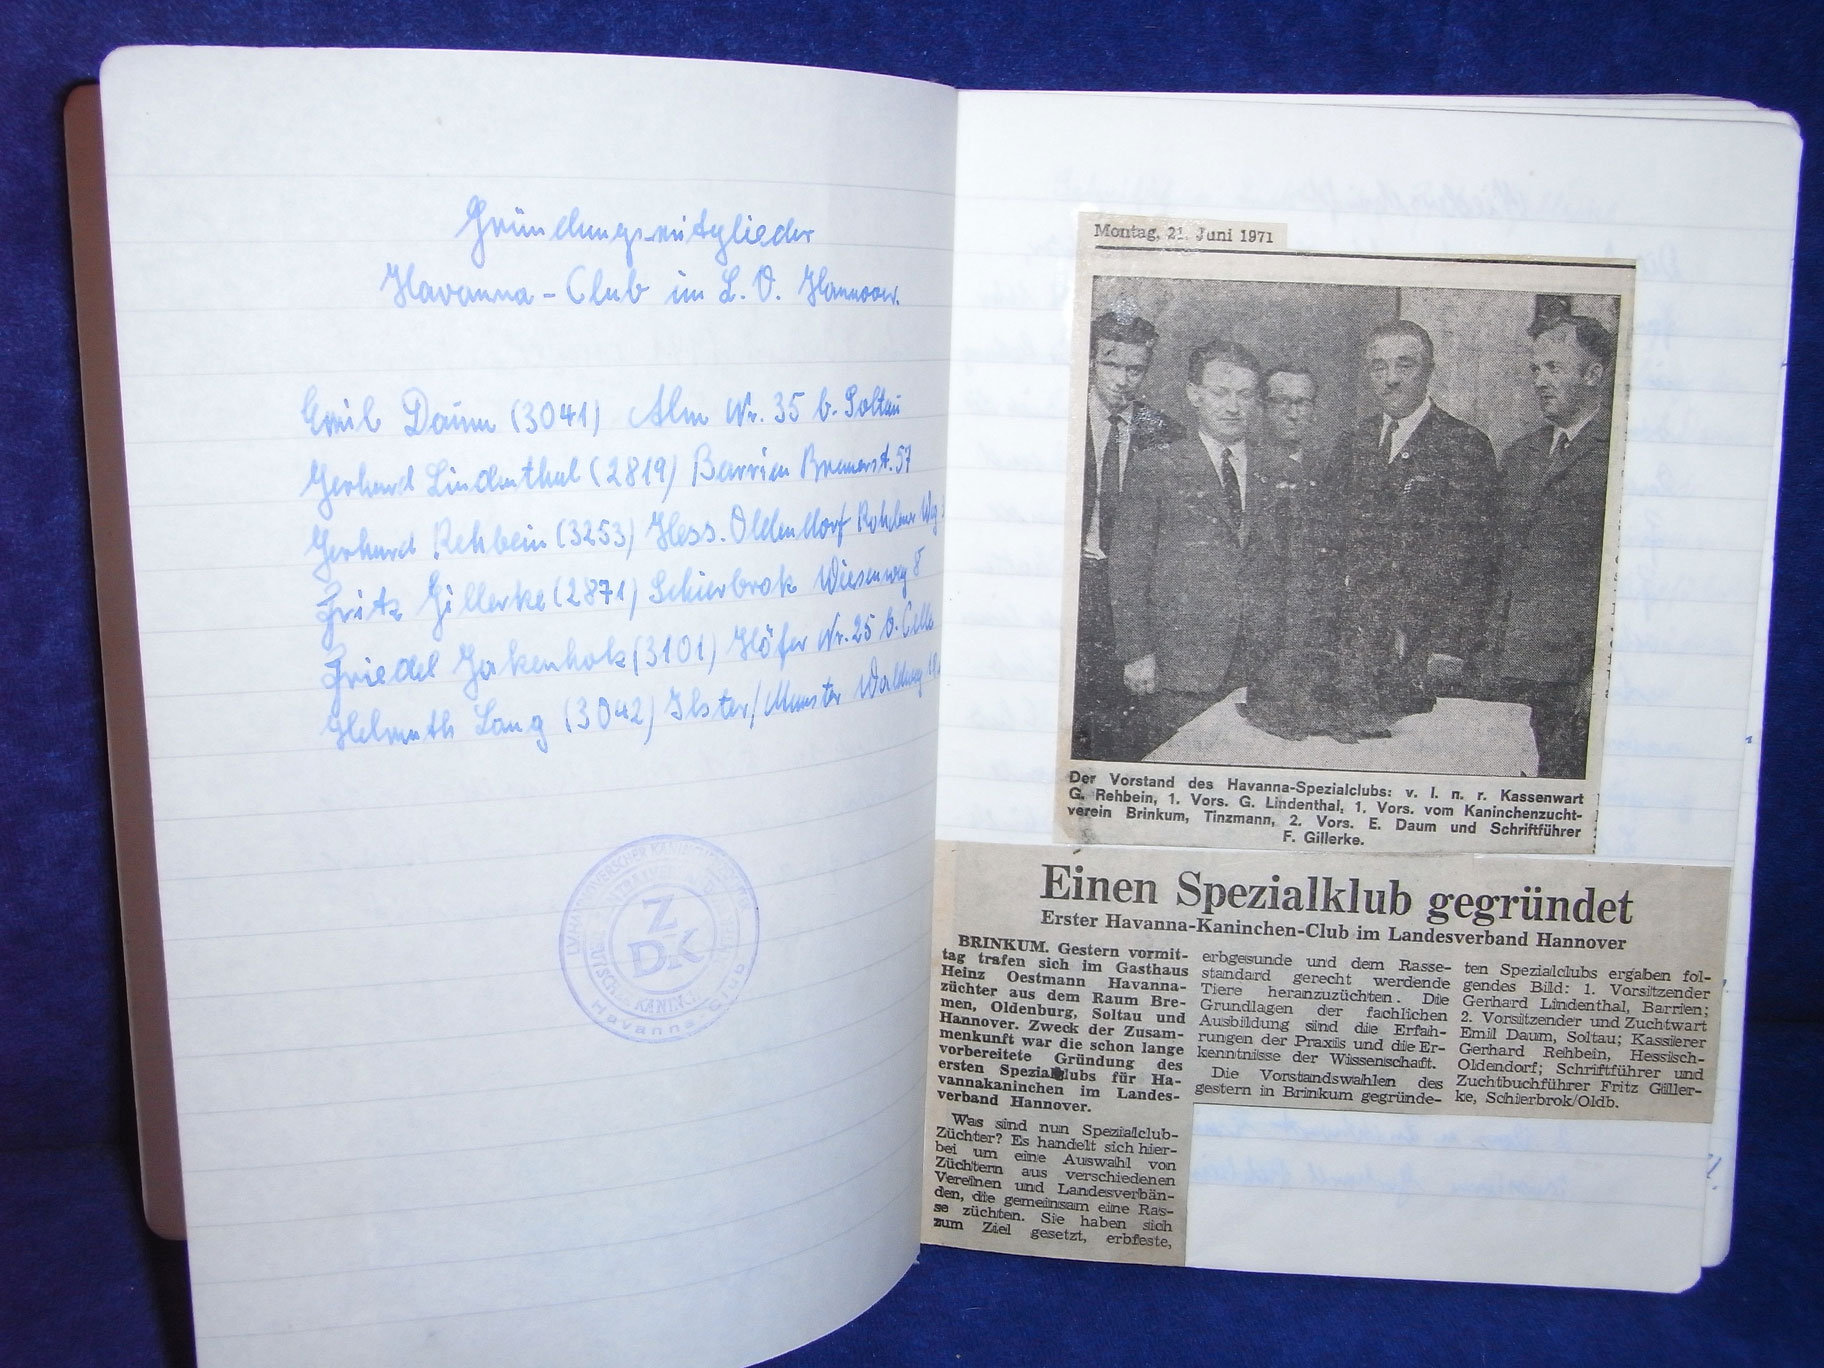 Gründungsmitglieder
Havanna-Club im L. V. Hannover.
Emil Daum (3041) Alm Nr. 35 b. Soltau
Gerhard Lindenthal (2819) Barrien Bremerst. 57
Gerhard Rehbein (3253) Hess. Oldendorf Weg
Fritz Gillerke (2871) Schierbrok Wiesenweg 8
Friedel Jakenhok (3101) Höfer Nr. 25 b. Celle
Helmuth Lang (3042) Ilster/Munster Waldweg
Z
DK
Havanna-Club
Montag, 21. Juni 1971
Der Vorstand des Havanna-Spezialclubs: v. l. n. r. Kassenwart
G. Rehbein, 1. Vors. G. Lindenthal, 1. Vors. vom Kaninchenzucht-
verein Brinkum, Tinzmann, 2. Vors. E. Daum und Schriftführer
F. Gillerke.
Einen Spezialklub gegründet
Erster Havanna-Kaninchen-Club im Landesverband Hannover
BRINKUM. Gestern vormit-
tag trafen sich im Gasthaus
Heinz Oestmann Havanna-
züchter aus dem Raum Bre-
men, Oldenburg, Soltau und
Hannover. Zweck der Zusam-
menkunft war die schon lange
vorbereitete Gründung des
ersten Spezialklubs für Ha-
vannakaninchen im Landes-
verband Hannover.
Was sind nun Spezialclub-
Züchter? Es handelt sich hier-
bei um eine Auswahl von
Züchtern aus verschiedenen
Vereinen und Landesverbän-
den, die gemeinsam eine Ras-
se züchten. Sie haben sich
zum Ziel gesetzt, erbfeste,
erbgesunde und dem Rasse-
standard gerecht werdende
Tiere heranzuzüchten. Die
Grundlagen der fachlichen
Ausbildung sind die Erfah-
rungen der Praxis und die Er-
kenntnisse der Wissenschaft.
Die Vorstandswahlen des
gestern in Brinkum gegründe-
ten Spezialclubs ergaben fol-
gendes Bild: 1. Vorsitzender
Gerhard Lindenthal, Barrien;
2. Vorsitzender und Zuchtwart
Emil Daum, Soltau; Kassierer
Gerhard Rehbein, Hessisch-
Oldendorf; Schriftführer und
Zuchtbuchführer Fritz Giller-
ke, Schierbrok/Oldb.